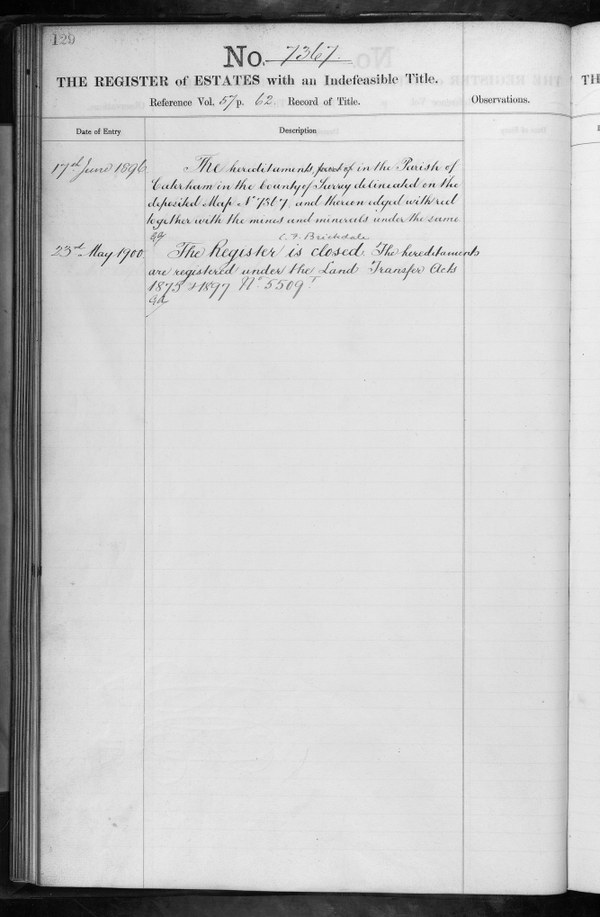 129
No. 7367.
THE REGISTER of ESTATES with an Indefeasible Title.
Reference Vol. 57 p. 62. Record of Title.
Observations.
Date of Entry
Description
17th June 1896.
The hereditaments in the Parish of
Caterham in the County of Surrey delineated on the
deposited Map No 7367, and thereon edged with red
together with the mines and minerals under the same
C. F. Brickdale
23rd May 1900.
The Register is closed The hereditaments
are registered under the Land Transfer Acts
1875 & 1897 No 5509
TH
D